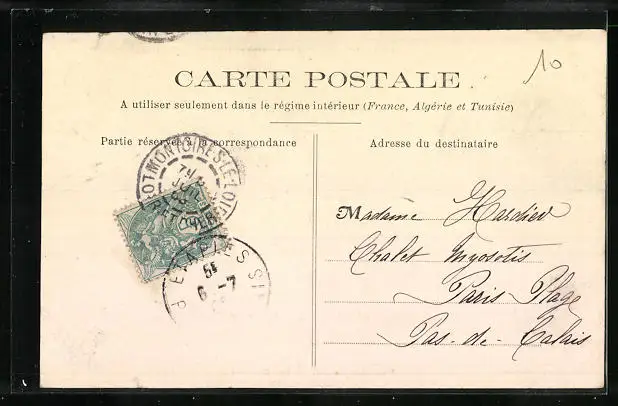 10
CARTE POSTALE
A utiliser seulement dans le régime intérieur (France, Algérie et Tunisie)
Partie réservée à la correspondance
Adresse du destinataire
MONTOIRE-S-LE-LOIR
Madame Hardiev
Chalet Myosotis
Paris Plage
Pas-de-Calais
ÉTAPLES
6 -7